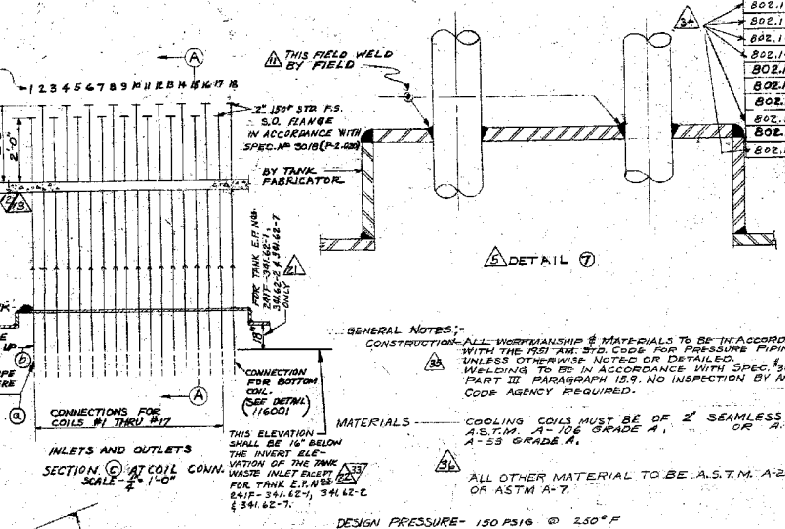 A
THIS FIELD WELD
BY FIELD
11
34
802.1
802.1
802.1
802.1
802.1
802.1
802.
802.1
802.
802.1
1 2 3 4 5 6 7 8 9 10 11 12 13 14 15 16 17 18
2" 150# STD. F.S.
S.O. FLANGE
IN ACCORDANCE WITH
SPEC. Nº 3018
BY TANK
FABRICATOR
2'-0"
FOR TANK E.P. Nos.
241F-341.62-1,
341.62-2 & 341.62-7
ONLY
21
5 DETAIL 7
18"
UP
b
a
CONNECTION
FOR BOTTOM
COIL.
(SEE DETAIL)
116001
A
CONNECTIONS FOR
COILS #1 THRU #17
INLETS AND OUTLETS
SECTION C AT COIL CONN.
THIS ELEVATION
SHALL BE 16" BELOW
THE INVERT ELE-
VATION OF THE TANK
WASTE INLET EXCEPT
FOR TANK E.P. Nos
241F-341.62-1, 341.62-2
& 341.62-7.
33
GENERAL NOTES:-
CONSTRUCTION-ALL WORKMANSHIP & MATERIALS TO BE IN ACCORD
WITH THE 1951 AM. STD. CODE FOR PRESSURE PIPIN
UNLESS OTHERWISE NOTED OR DETAILED.
WELDING TO BE IN ACCORDANCE WITH SPEC.
PART III PARAGRAPH 15.9. NO INSPECTION BY AN
CODE AGENCY REQUIRED.
35
MATERIALS - COOLING COILS MUST BE OF 2" SEAMLESS
A.S.T.M. A-106 GRADE A, OR A.
A-53 GRADE A.
36
ALL OTHER MATERIAL TO BE A.S.T.M. A-2
OR ASTM A-7
DESIGN PRESSURE- 150 PSIG @ 250°F